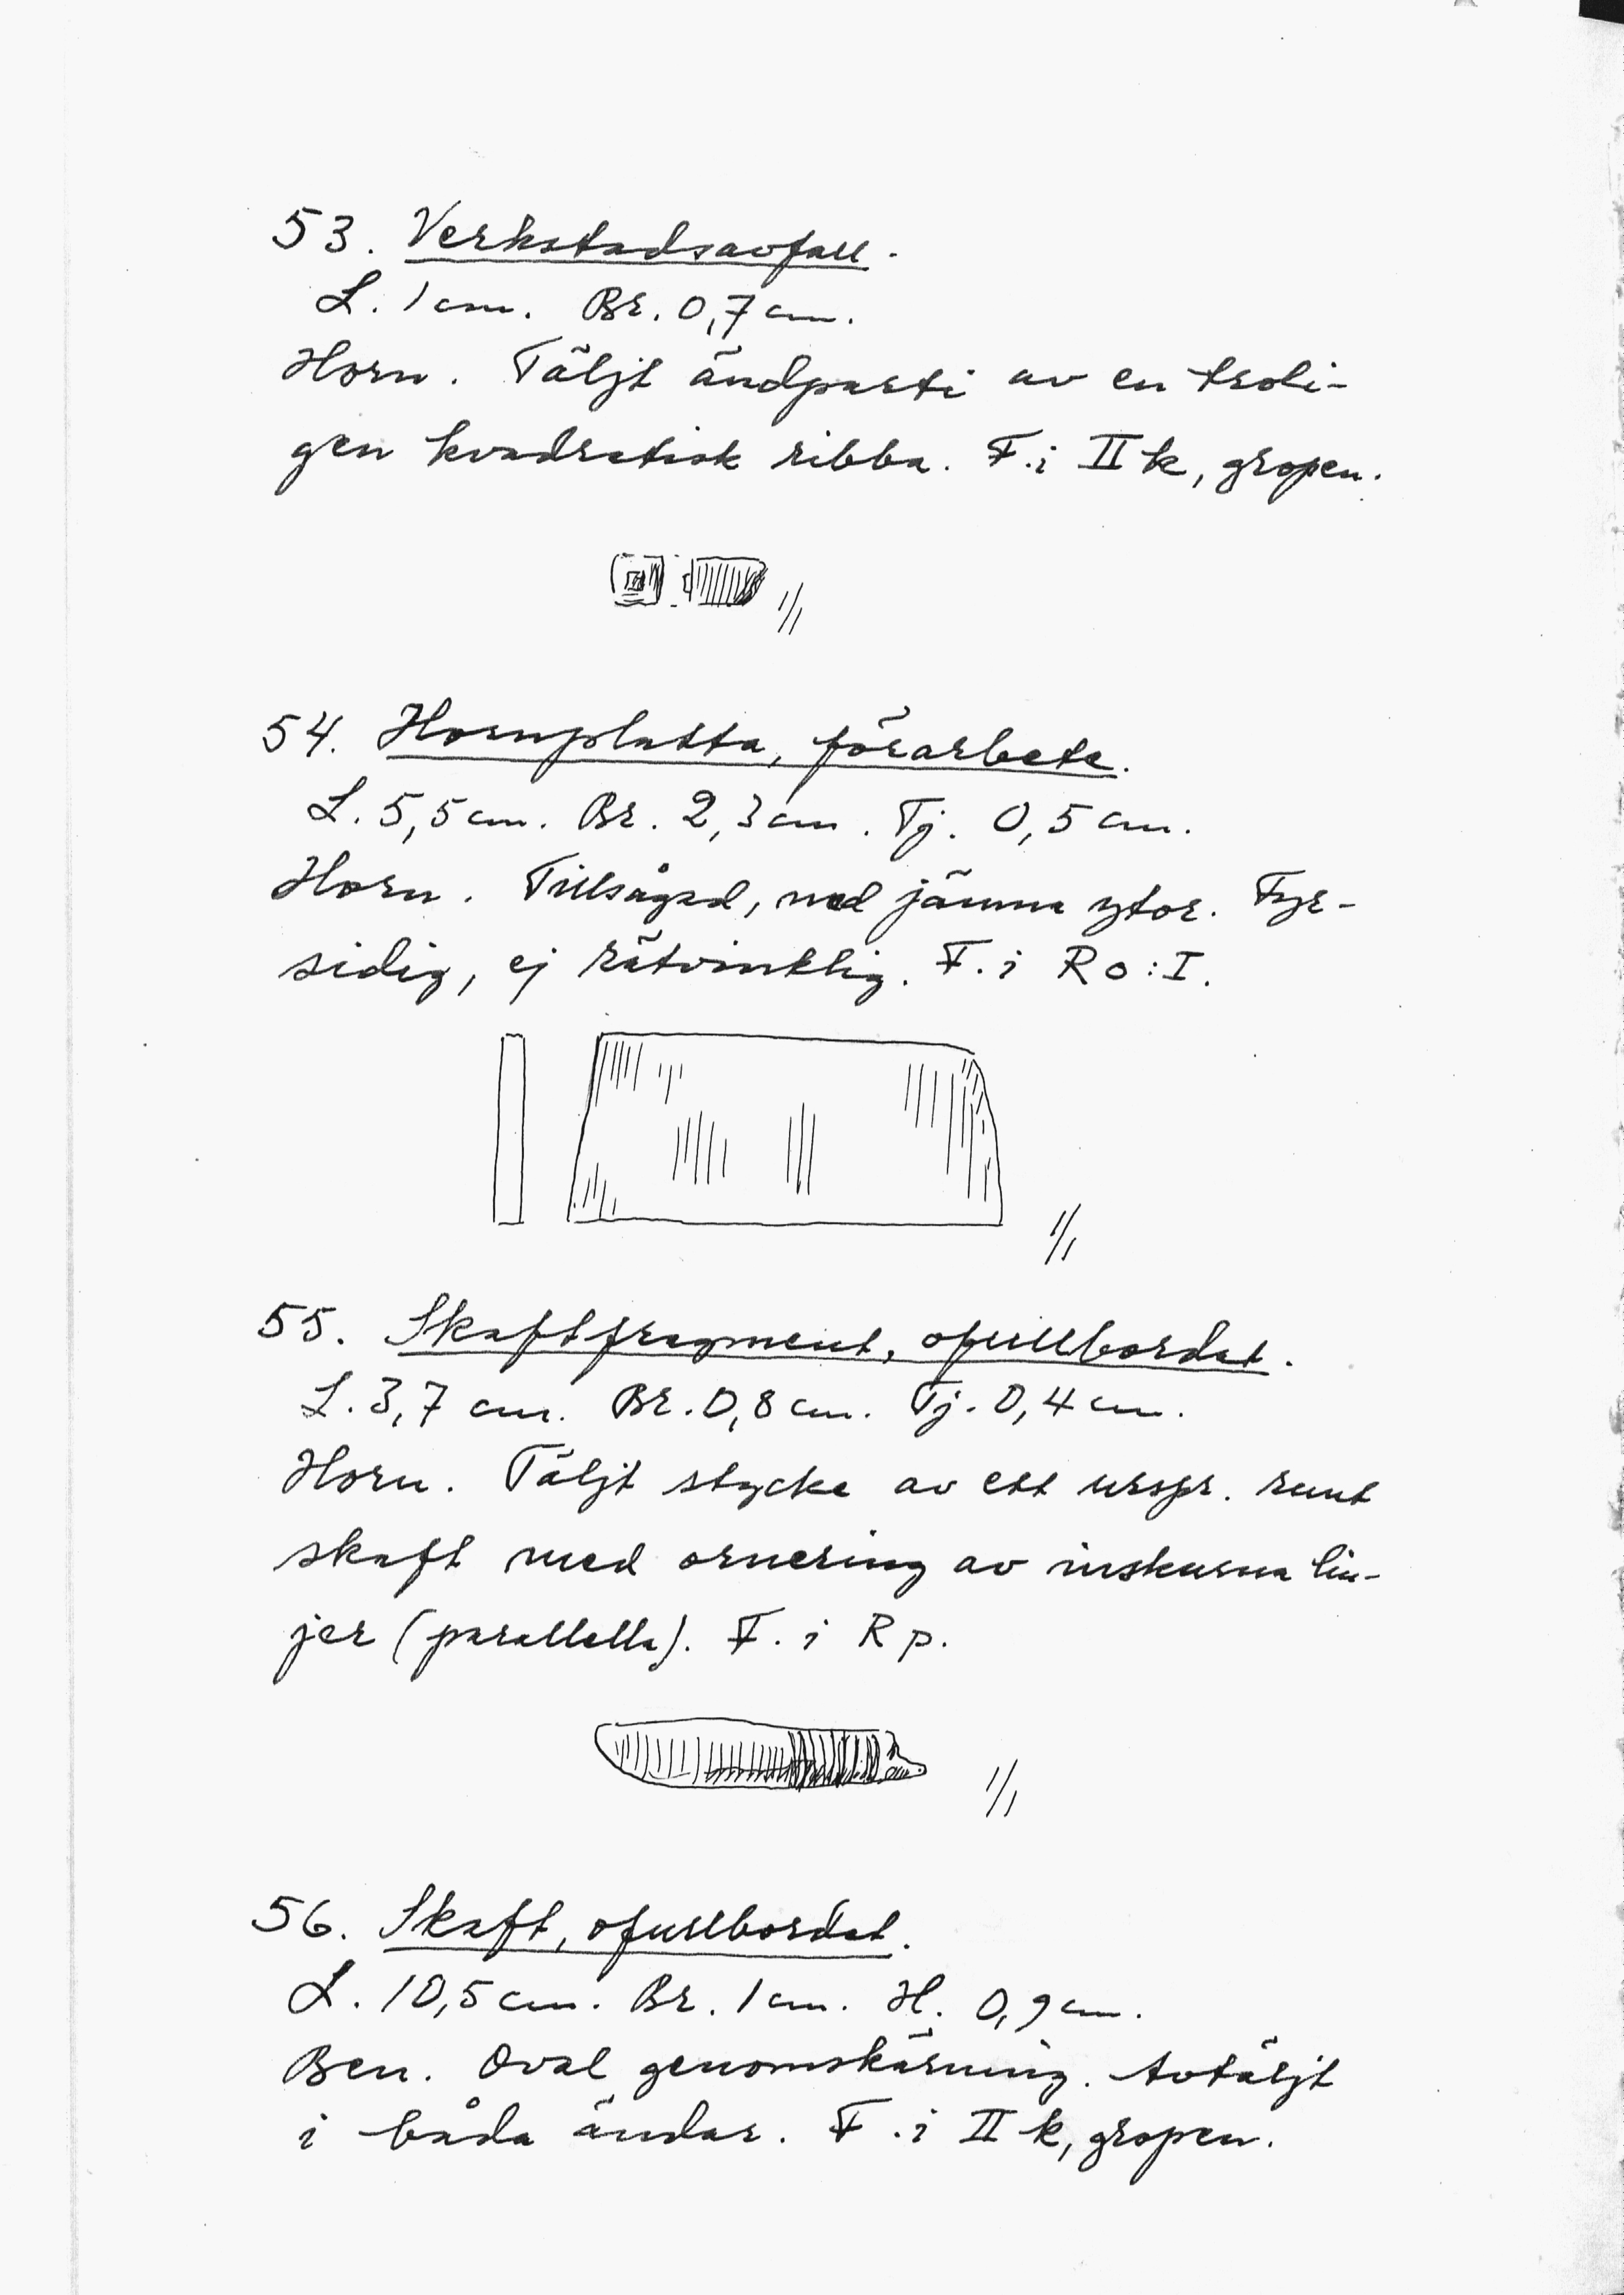 53. Verkstadsavfall.
L. 1 cm. Br. 0,7 cm.
Horn. Täljt ändparti av en troli-
gen kvadratisk ribba. F. i II k, gropen.
1/1
54. Hornplatta, förarbete.
L. 5,5 cm. Br. 2,3 cm. Tj. 0,5 cm.
Horn. Tillsågad, med jämna ytor. Fyr-
sidig, ej rätvinklig. F. i R o:I.
1/1
55. Skaftfragment, ofullbordat.
L. 3,7 cm. Br. 0,8 cm. Tj. 0,4 cm.
Horn. Täljt stycke av ett urspr. runt
skaft med ornering av inskurna lin-
jer (parallella). F. i R p.
1/1
56. Skaft, ofullbordat.
L. 10,5 cm. Br. 1 cm. H. 0,9 cm.
Ben. Oval genomskärning. Avtäljt
i båda ändar. F. i II k, gropen.